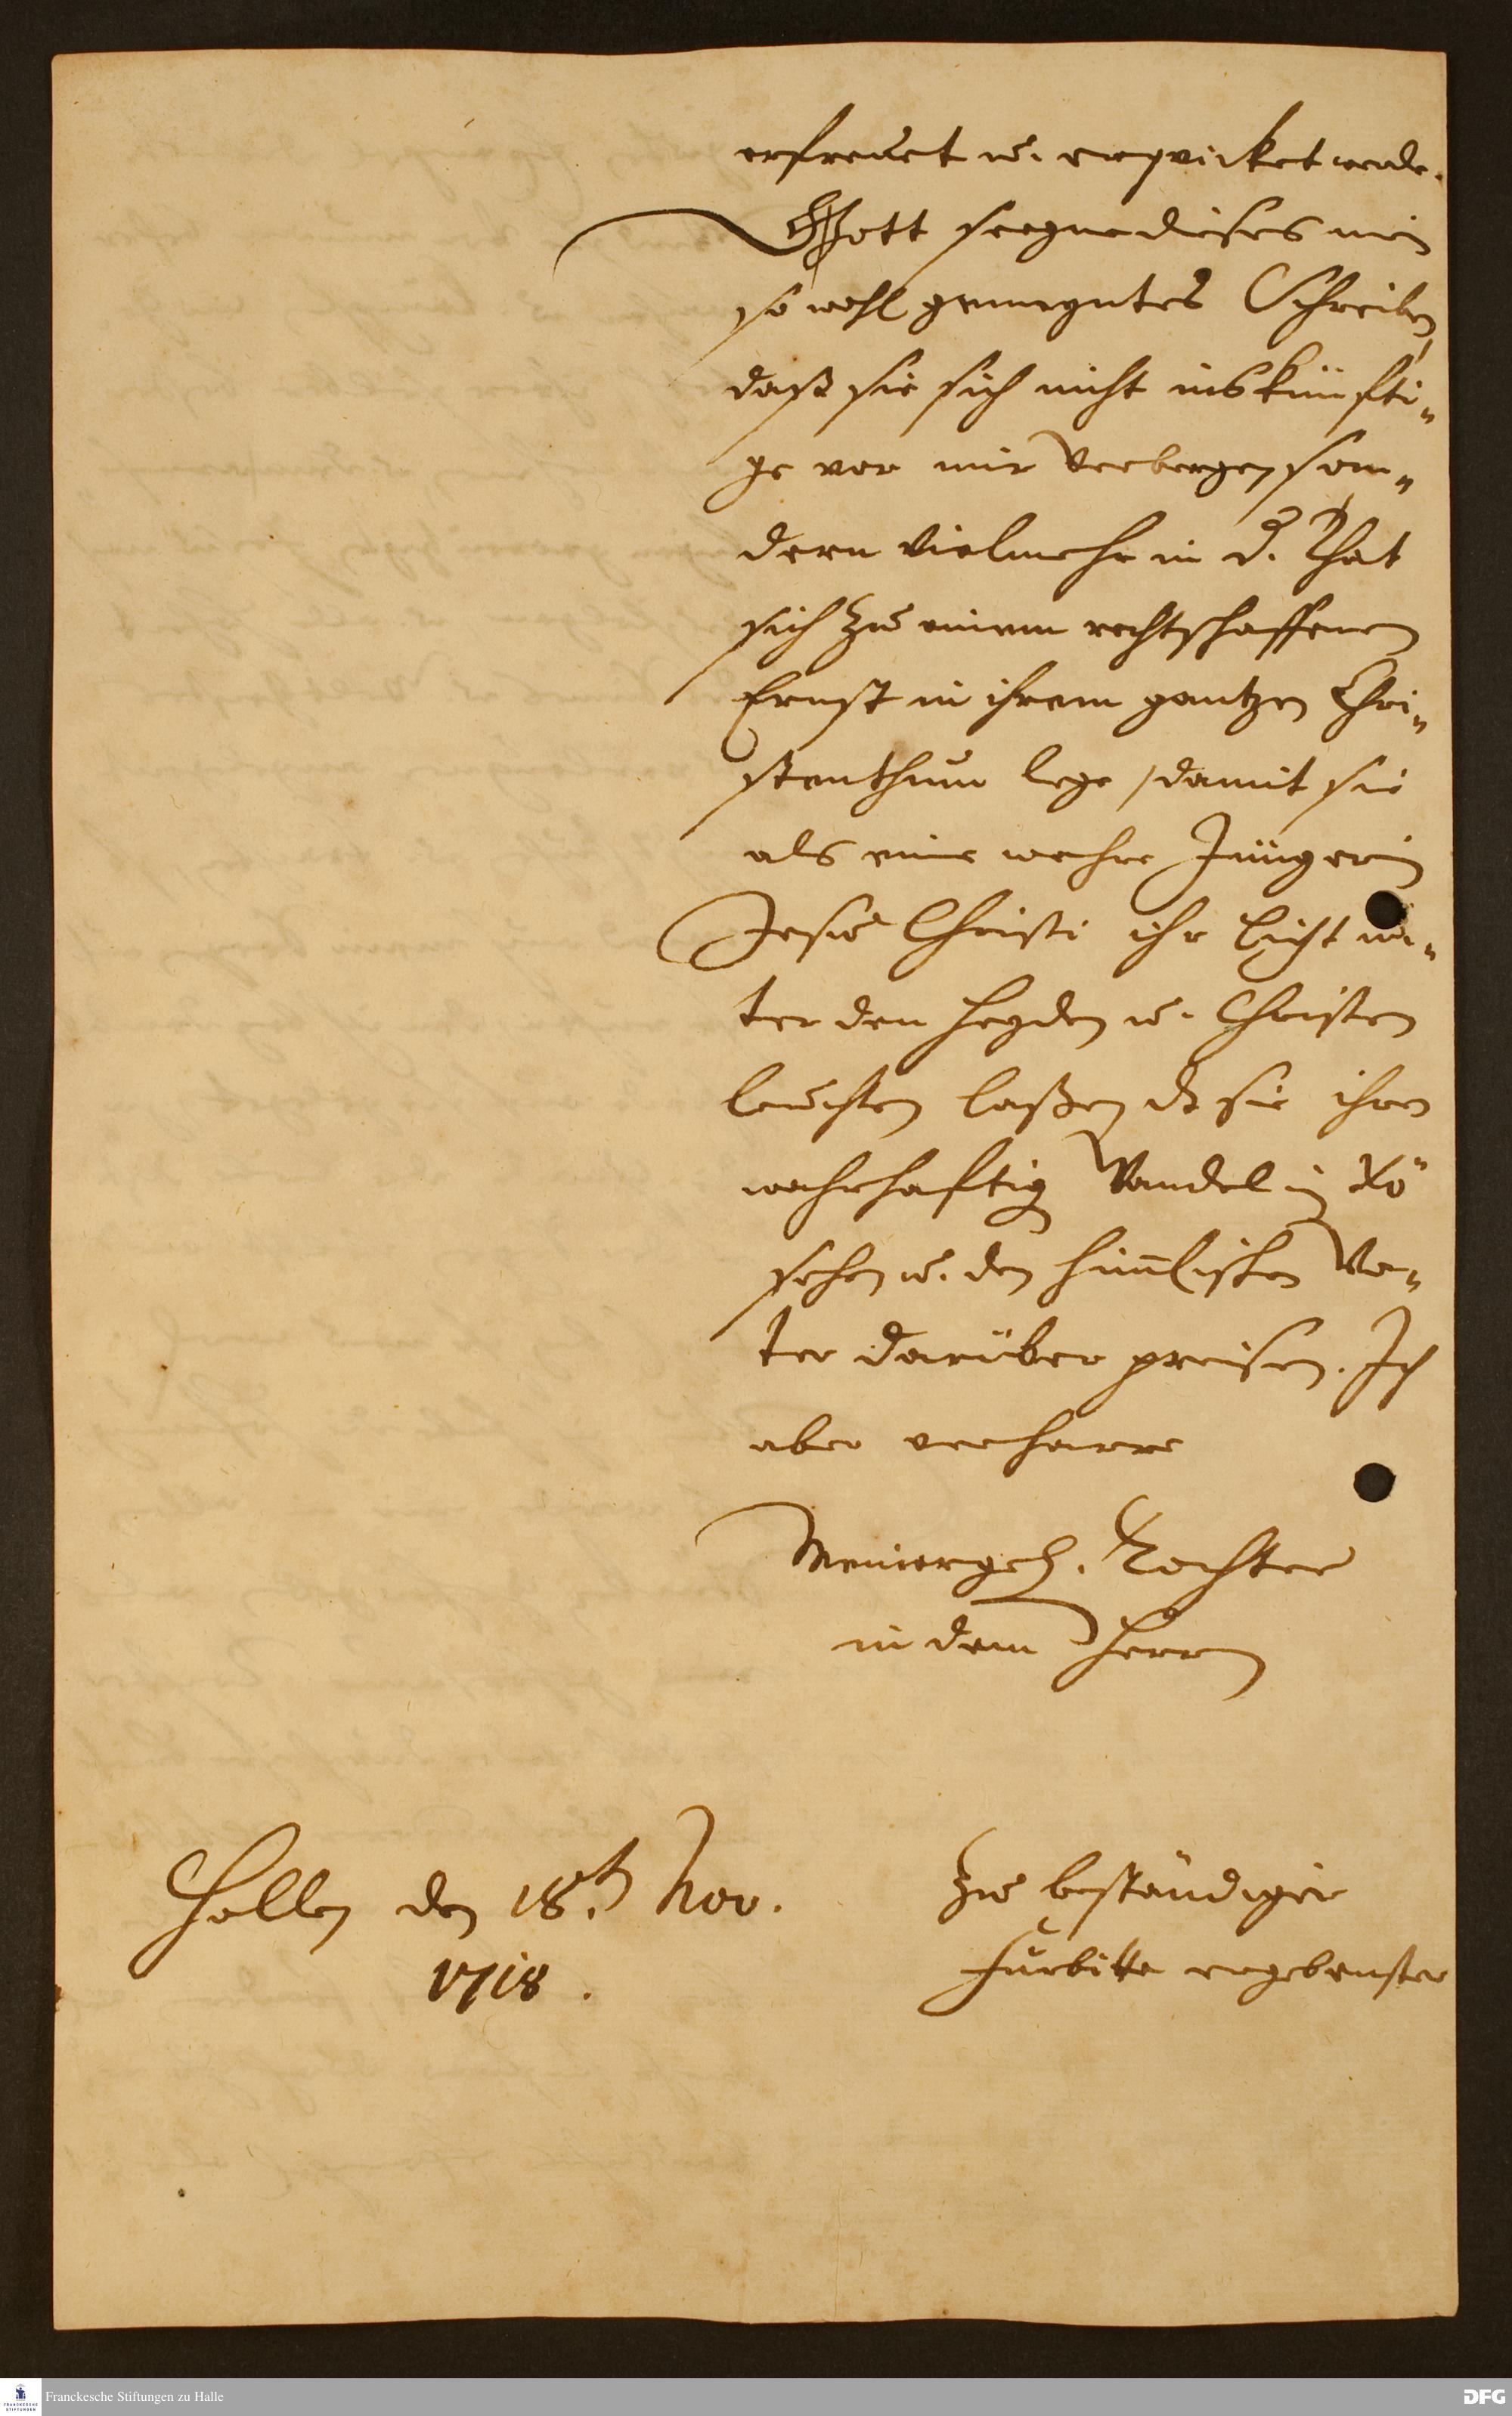 erfreuet u. erquicket werde.
Gott seegne dieses mein
so wohl gemeyntes Schreiben,
daß sie sich nicht inskünfti-
ge vor mir verbergen son-
dern vielmehr in d. That
sich zu einem rechtschaffenen
Ernst in ihrem gantzen Chri-
stenthum lege, damit sie
als eine wahre Jüngerin
Jesu Christi ihr Licht un-
ter den Heyden u. Christen
leuchten laßen dz sie ihren
wahrhaftig Wandel in Xo
sehen u. den himlischen Va-
ter darüber preisen. Ich
aber verharre
Meiner gel. Tochter
in dem Herrn
Halle den 18.t Nov.
1718.
zu beständiger
Fürbitte ergebenster
Franckesche Stiftungen zu Halle
DFG